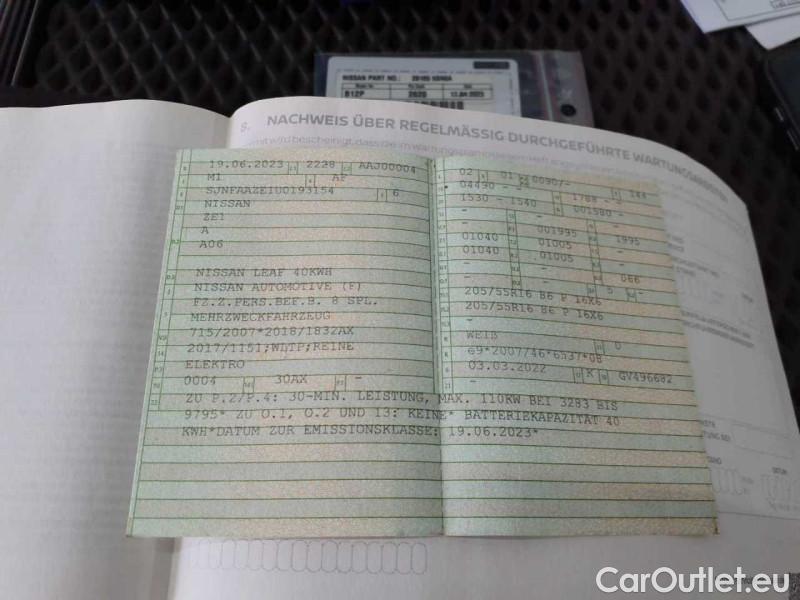 NISSAN PART NO.:
Date
B12P 2020 13 Jun 2023
8. NACHWEIS ÜBER REGELMÄSSIG DURCHGEFÜHRTE WARTUNGSARBEITEN
19.06.2023 2228 AAJ00004
M1 AF
SJNFAAZE1U0193154 6
NISSAN
ZE1
A
A06
NISSAN LEAF 40KWH
NISSAN AUTOMOTIVE (F)
FZ.Z.PERS.BEF.B. 8 SPL.
MEHRZWECKFAHRZEUG
715/2007*2018/1832AX
2017/1151;WLTP;REINE
ELEKTRO
0004 30AX -
02 01 00907- 144
04490 - - 1788 - -
1530 - 1540 001580 -
- -
- 001995 1995
01040 01005 -
01040 01005 -
- - 066
- 5 -
205/55R16 86 P 16X6
205/55R16 86 P 16X6
-
WEIß 0
e9*2007/46*6537*08
03.03.2022 K GV496682
-
ZU P.2/P.4: 30-MIN. LEISTUNG, MAX. 110KW BEI 3283 BIS
9795* ZU O.1, O.2 UND 13: KEINE* BATTERIEKAPAZITÄT 40
KWH*DATUM ZUR EMISSIONSKLASSE: 19.06.2023*
CarOutlet.eu